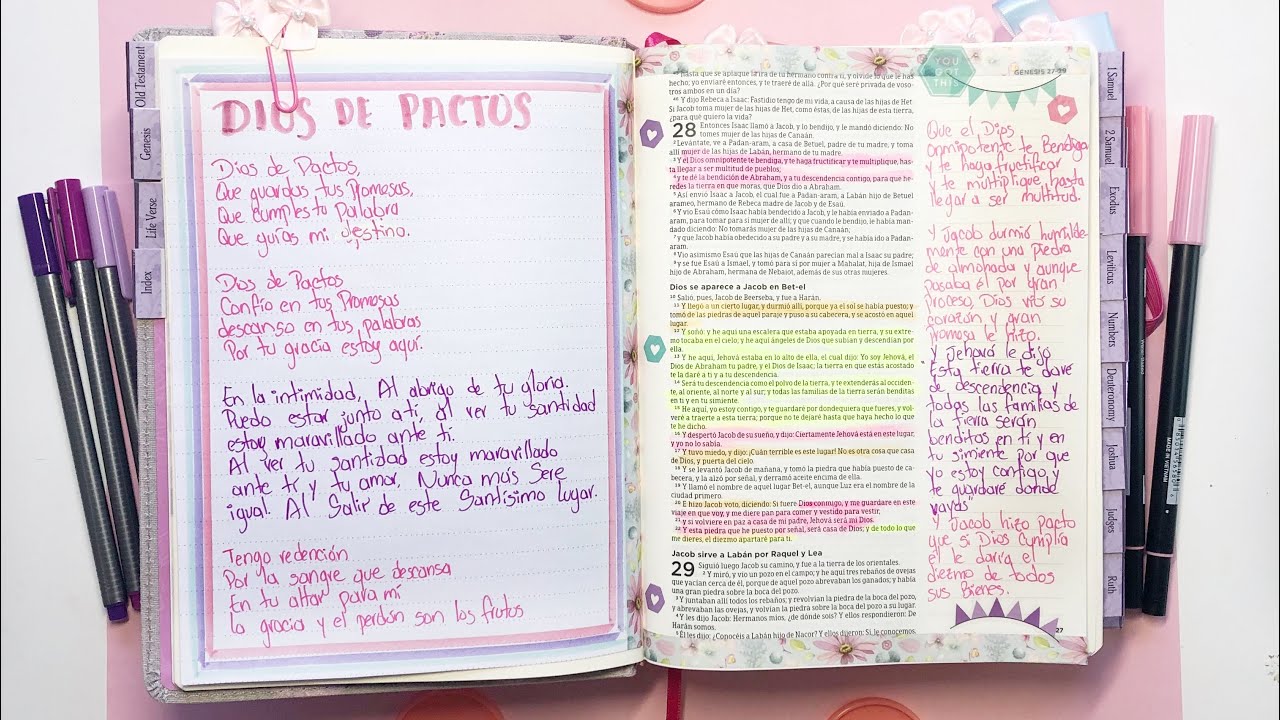 Old Testament
Genesis
Life Verse
Index
DIOS DE PACTOS
Dios de Pactos,
Que guardas tus Promesas,
Que cumples tu Palabra
Que guías mi destino.
Dios de Pactos
Confío en tus Promesas
descanso en tus palabras
Por tu gracia estoy aquí.
En la intimidad, Al abrigo de tu gloria.
Puedo estar junto a ti, al ver tu santidad
estoy maravillado ante ti.
Al ver tu santidad estoy maravillado
ante ti y tu amor, Nunca más Seré
igual. Al Salir de este Santísimo lugar.
Tengo redención
Por la sangre que descansa
En tu altar para mi
la gracia y el perdón son los frutos
YOU
GOT
THIS
GENESIS 27-29
hasta que se aplaque la ira de tu hermano contra ti, y olvide lo que le has
hecho; yo enviaré entonces, y te traeré de allá. ¿Por qué seré privada de voso-
tros ambos en un día?
46 Y dijo Rebeca a Isaac: Fastidio tengo de mi vida, a causa de las hijas de Het.
Si Jacob toma mujer de las hijas de Het, como éstas, de las hijas de esta tierra,
¿para qué quiero la vida?
28 Entonces Isaac llamó a Jacob, y lo bendijo, y le mandó diciendo: No
tomes mujer de las hijas de Canaán.
2 Levántate, ve a Padan-aram, a casa de Betuel, padre de tu madre, y toma
allí mujer de las hijas de Labán, hermano de tu madre.
3 Y el Dios omnipotente te bendiga, y te haga fructificar y te multiplique, has-
ta llegar a ser multitud de pueblos;
4 y te dé la bendición de Abraham, y a tu descendencia contigo, para que he-
redes la tierra en que moras, que Dios dio a Abraham.
5 Así envió Isaac a Jacob, el cual fue a Padan-aram, a Labán hijo de Betuel
arameo, hermano de Rebeca madre de Jacob y de Esaú.
6 Y vio Esaú cómo Isaac había bendecido a Jacob, y le había enviado a Padan-
aram, para tomar para sí mujer de allí; y que cuando le bendijo, le había man-
dado diciendo: No tomarás mujer de las hijas de Canaán;
7 y que Jacob había obedecido a su padre y a su madre, y se había ido a Padan-
aram.
8 Vio asimismo Esaú que las hijas de Canaán parecían mal a Isaac su padre;
9 y se fue Esaú a Ismael, y tomó para sí por mujer a Mahalat, hija de Ismael
hijo de Abraham, hermana de Nebaiot, además de sus otras mujeres.
Dios se aparece a Jacob en Bet-el
10 Salió, pues, Jacob de Beerseba, y fue a Harán.
11 Y llegó a un cierto lugar, y durmió allí, porque ya el sol se había puesto; y
tomó de las piedras de aquel paraje y puso a su cabecera, y se acostó en aquel
lugar.
12 Y soñó: y he aquí una escalera que estaba apoyada en tierra, y su extre-
mo tocaba en el cielo; y he aquí ángeles de Dios que subían y descendían por
ella.
13 Y he aquí, Jehová estaba en lo alto de ella, el cual dijo: Yo soy Jehová, el
Dios de Abraham tu padre, y el Dios de Isaac; la tierra en que estás acostado
te la daré a ti y a tu descendencia.
14 Será tu descendencia como el polvo de la tierra, y te extenderás al occiden-
te, al oriente, al norte y al sur; y todas las familias de la tierra serán benditas
en ti y en tu simiente.
15 He aquí, yo estoy contigo, y te guardaré por dondequiera que fueres, y vol-
veré a traerte a esta tierra; porque no te dejaré hasta que haya hecho lo que
te he dicho.
16 Y despertó Jacob de su sueño, y dijo: Ciertamente Jehová está en este lugar,
y yo no lo sabía.
17 Y tuvo miedo, y dijo: ¡Cuán terrible es este lugar! No es otra cosa que casa
de Dios, y puerta del cielo.
18 Y se levantó Jacob de mañana, y tomó la piedra que había puesto de ca-
becera, y la alzó por señal, y derramó aceite encima de ella.
19 Y llamó el nombre de aquel lugar Bet-el, aunque Luz era el nombre de la
ciudad primero.
20 E hizo Jacob voto, diciendo: Si fuere Dios conmigo, y me guardare en este
viaje en que voy, y me diere pan para comer y vestido para vestir,
21 y si volviere en paz a casa de mi padre, Jehová será mi Dios.
22 Y esta piedra que he puesto por señal, será casa de Dios; y de todo lo que
me dieres, el diezmo apartaré para ti.
Jacob sirve a Labán por Raquel y Lea
29 Siguió luego Jacob su camino, y fue a la tierra de los orientales.
2 Y miró, y vio un pozo en el campo; y he aquí tres rebaños de ovejas
que yacían cerca de él, porque de aquel pozo abrevaban los ganados; y había
una gran piedra sobre la boca del pozo.
3 Y juntaban allí todos los rebaños; y revolvían la piedra de la boca del pozo,
y abrevaban las ovejas, y volvían la piedra sobre la boca del pozo a su lugar.
4 Y les dijo Jacob: Hermanos míos, ¿de dónde sois? Y ellos respondieron: De
Harán somos.
5 Él les dijo: ¿Conocéis a Labán hijo de Nacor? Y ellos dijeron: Sí, le conocemos.
Que el Dios
omnipotente te Bendiga
y te haga fructificar
y te multiplique hasta
llegar a ser multitud.
Y Jacob durmió humilde-
mente con una piedra
de almohada y aunque
pasaba él por gran
Proceso, Dios vio su
corazón y gran
promesa le hizo.
Y Jehová le dijo
"Esta tierra te daré
de descendencia y
todas las familias de
la tierra serán
benditos en ti y en
tu simiente por que
yo estoy contigo y
te guardaré donde
vayas"
Y Jacob hizo pacto
que si Dios cumplía
él le daría el
diezmo de todos
sus Bienes.
27
1 Samuel
2 Samuel
Exodus
Leviticus
Numbers
Deuteronomy
Joshua
Judges
Ruth